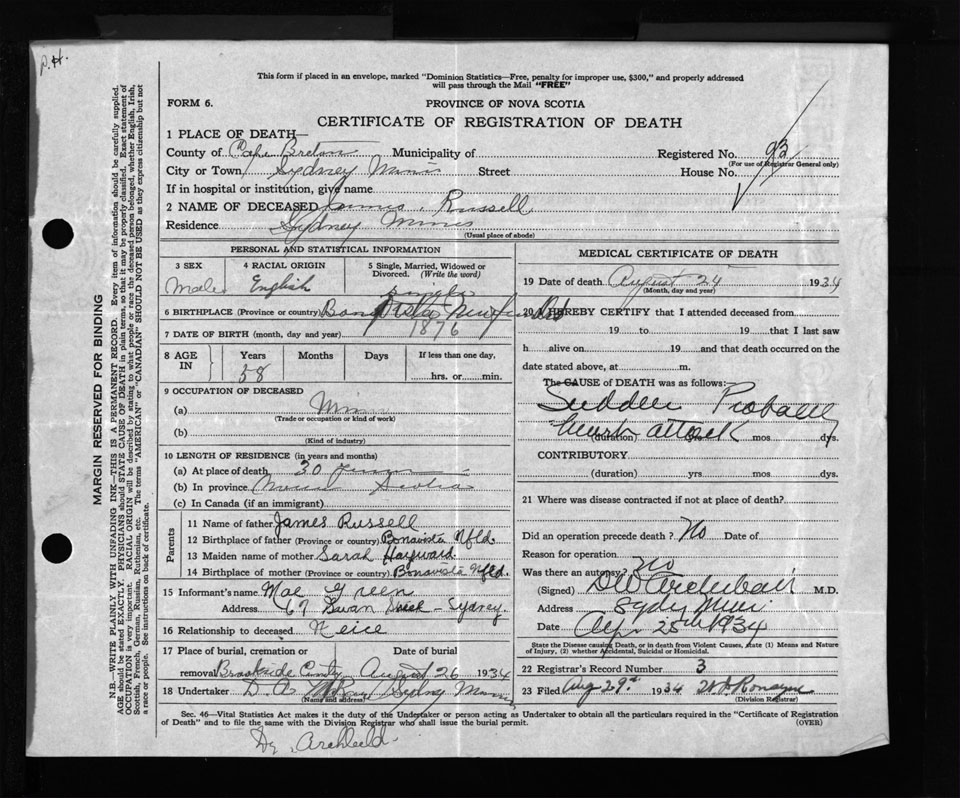 P.H.
This form if placed in an envelope, marked "Dominion Statistics—Free, penalty for improper use, $300," and properly addressed
will pass through the Mail "FREE"
FORM 6.
PROVINCE OF NOVA SCOTIA
CERTIFICATE OF REGISTRATION OF DEATH
1 PLACE OF DEATH—
County of Cape Breton Municipality of Registered No. 93
(For use of Registrar General only)
City or Town Sydney Mines Street House No.
If in hospital or institution, give name
2 NAME OF DECEASED James Russell
Residence Sydney Mines
(Usual place of abode)
PERSONAL AND STATISTICAL INFORMATION
3 SEX 4 RACIAL ORIGIN 5 Single, Married, Widowed or Divorced. (Write the word)
Male English Single
6 BIRTHPLACE (Province or country) Bonavista Newfound
7 DATE OF BIRTH (month, day and year) 1876
8 AGE IN Years Months Days If less than one day,
58 hrs. or min.
9 OCCUPATION OF DECEASED
(a) Miner
(Trade or occupation or kind of work)
(b)
(Kind of industry)
10 LENGTH OF RESIDENCE (in years and months)
(a) At place of death 30 years
(b) In province Nova Scotia
(c) In Canada (if an immigrant)
Parents
11 Name of father James Russell
12 Birthplace of father (Province or country) Bonavista Nfld.
13 Maiden name of mother Sarah Hayward
14 Birthplace of mother (Province or country) Bonavista Nfld.
15 Informant's name Mae Green
Address 67 Swan Street - Sydney.
16 Relationship to deceased Neice
17 Place of burial, cremation or Date of burial
removal Brookside August 26 1934
18 Undertaker D. A. Sydney Mines
(Name and address)
MEDICAL CERTIFICATE OF DEATH
19 Date of death August 24 1934
(Month, day and year)
20 I HEREBY CERTIFY that I attended deceased from
19 to 19 that I last saw
h alive on 19 and that death occurred on the
date stated above, at m.
The CAUSE of DEATH was as follows:
Sudden Probable
heart attack
(duration) yrs mos dys.
CONTRIBUTORY
(duration) yrs mos dys.
21 Where was disease contracted if not at place of death?
Did an operation precede death? No Date of
Reason for operation
Was there an autopsy? No
(Signed) DW Archibald M.D.
Address Sydney Mines
Date 25th 1934
State the Disease causing Death, or in death from Violent Causes, state (1) Means and Nature
of Injury, (2) whether Accidental, Suicidal or Homicidal.
22 Registrar's Record Number 3
23 Filed Aug 29th 1934 Ronayne
(Division Registrar)
Sec. 46—Vital Statistics Act makes it the duty of the Undertaker or person acting as Undertaker to obtain all the particulars required in the "Certificate of Registration
of Death" and to file the same with the Division Registrar who shall issue the burial permit. (OVER)
Dr. Archibald.
MARGIN RESERVED FOR BINDING
N.B.—WRITE PLAINLY WITH UNFADING INK—THIS IS A PERMANENT RECORD. Every item of information should be carefully supplied.
AGE should be stated EXACTLY. PHYSICIANS should STATE CAUSE OF DEATH in plain terms, so that it may be properly classified. Exact statement of
OCCUPATION is very important. RACIAL ORIGIN will be described by stating to what people or race the deceased person belonged, whether English, Irish,
Scottish, French, German, Russian, Ruthenian, etc. The terms "AMERICAN" or "CANADIAN" SHOULD NOT BE USED as they express citizenship but not
a race or people. See instructions on back of certificate.